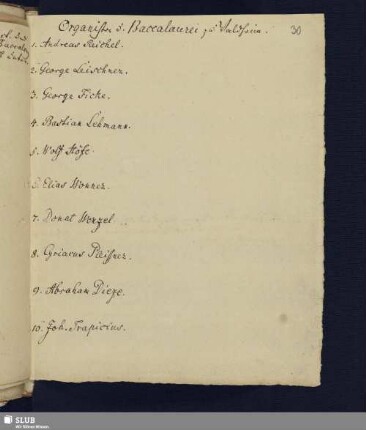 Organisten u. Baccalaurei zu Waldheim.
30
1. Andreas Reichel.
2. George Leischner.
3. George Ficke.
4. Bastian Lehmann.
5. Wolf Höfe.
6. Elias Wonner.
7. Donat Wenzel.
8. Cyriacus Pleißner.
9. Abraham Dieze.
10. Joh. Trapicius.
SLUB
Wir führen Wissen.